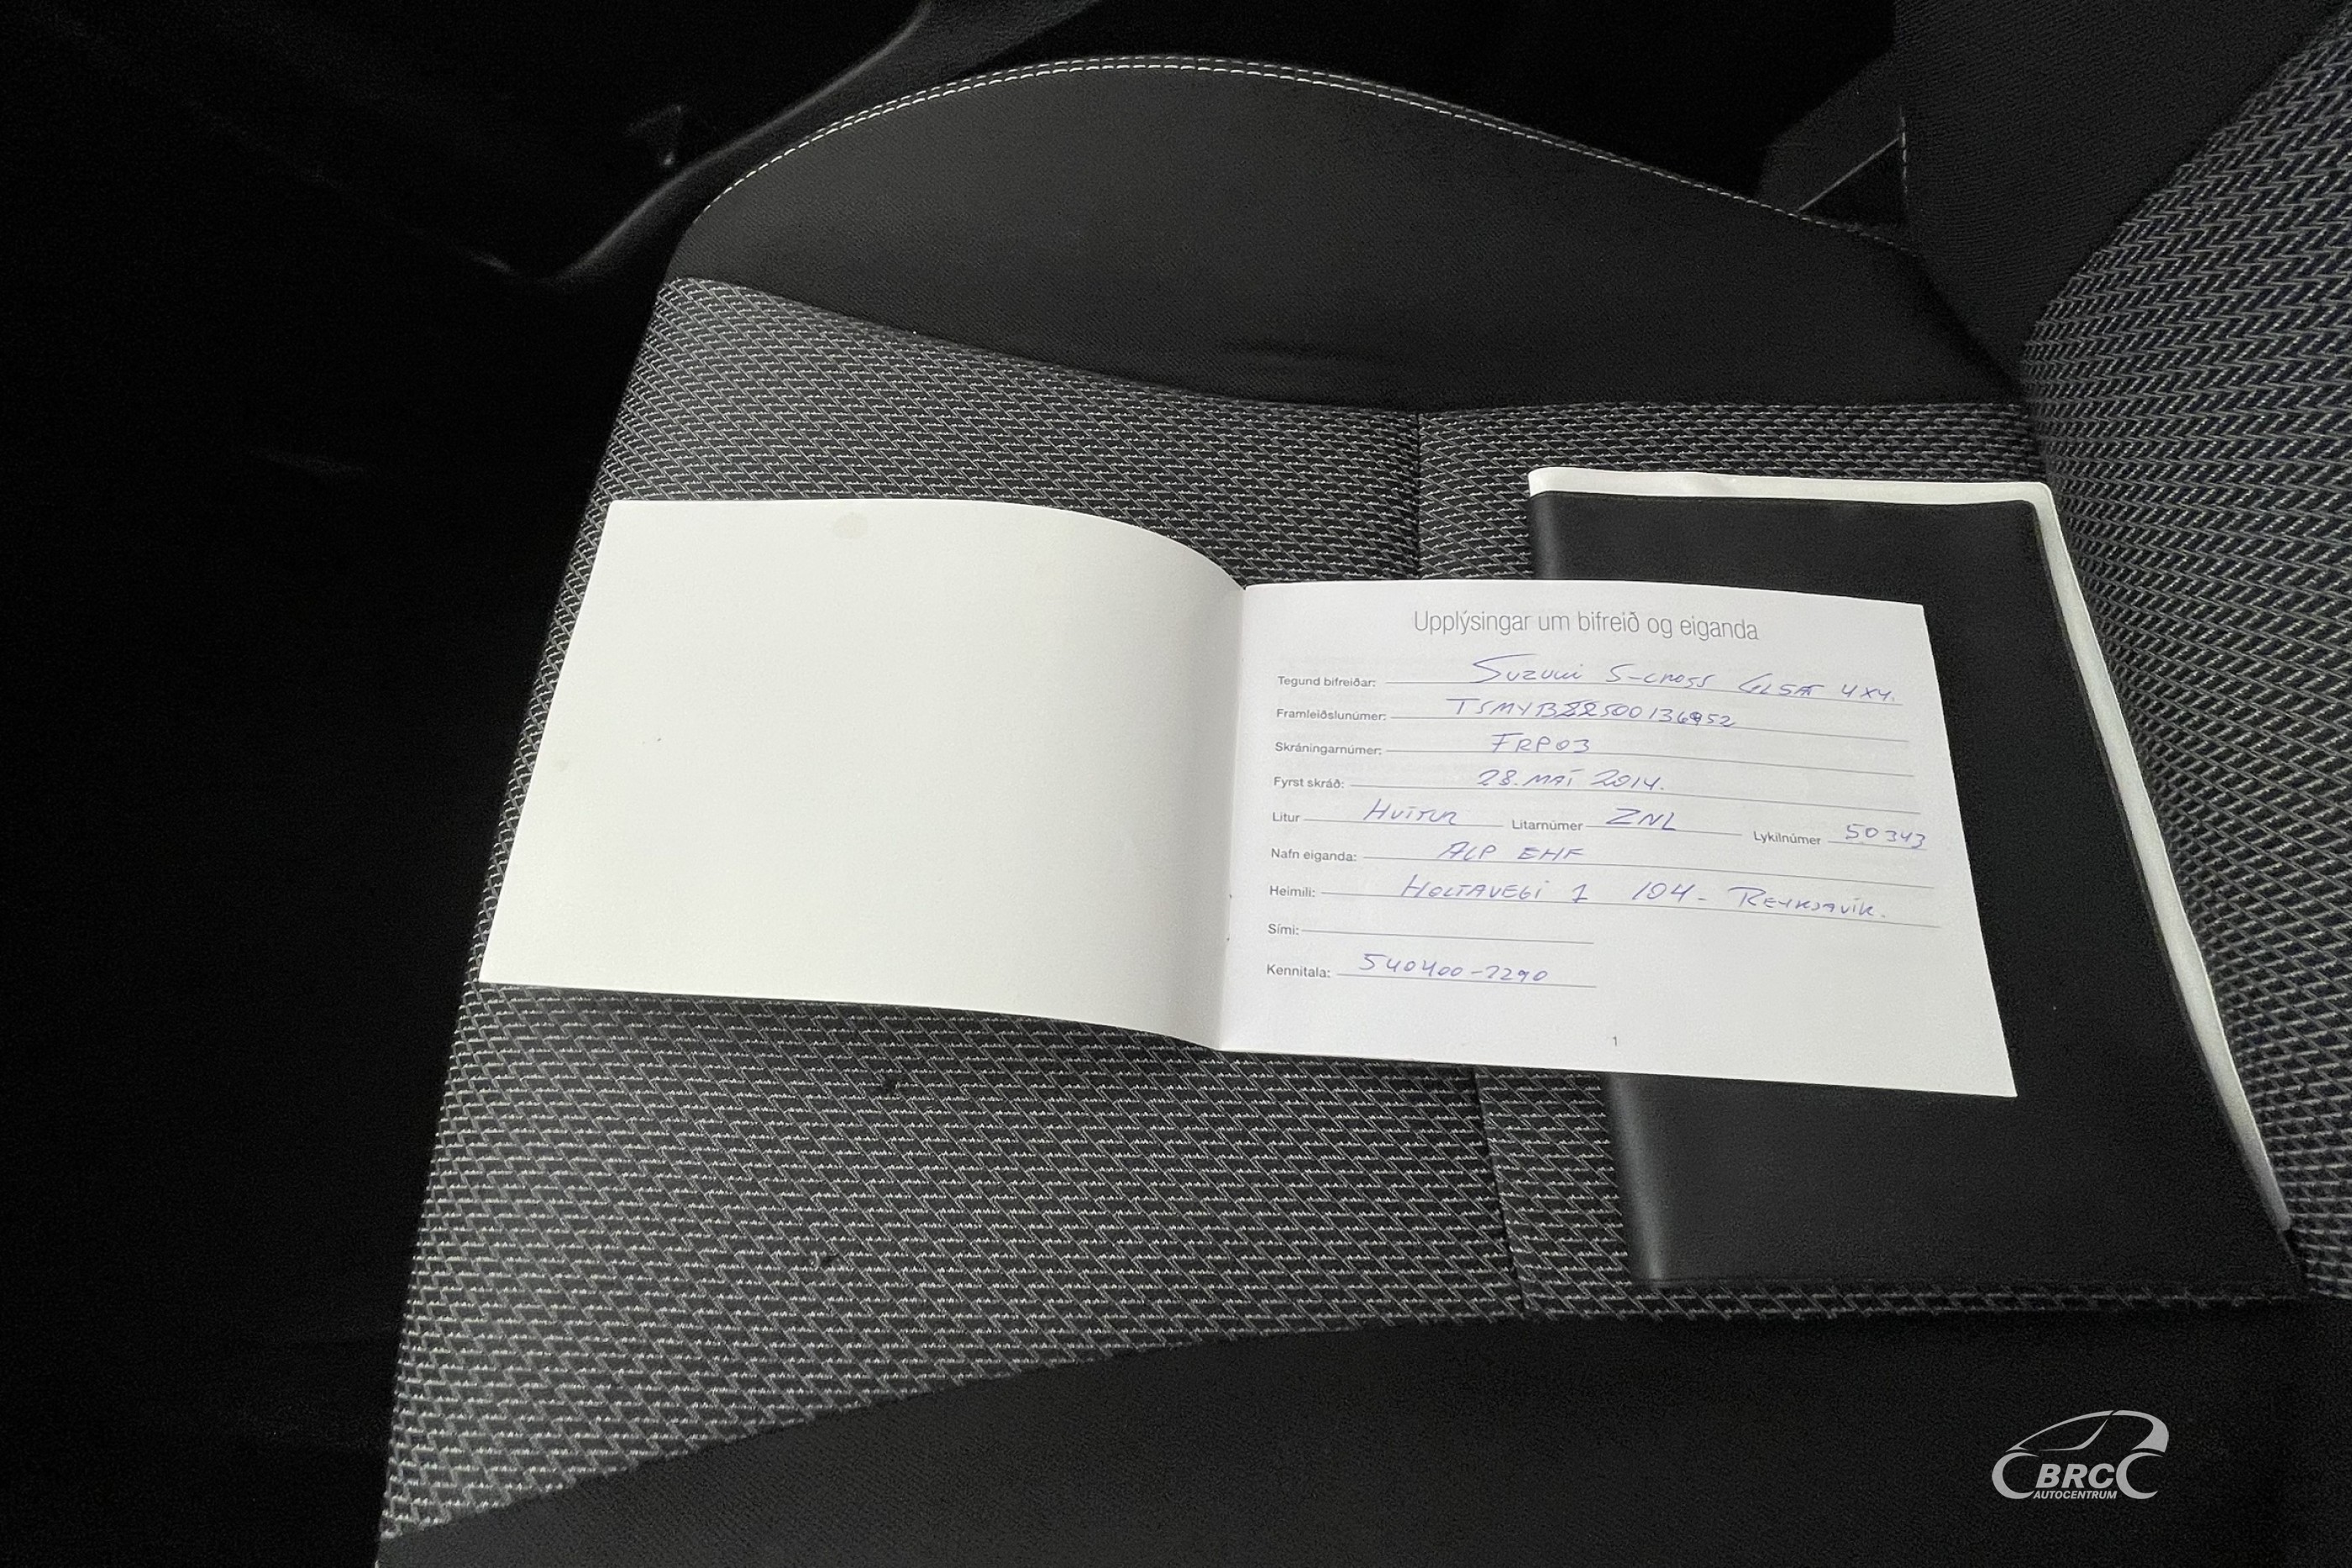 Upplýsingar um bifreið og eiganda
Tegund bifreiðar: Suzuki S-cross 4x4.
Framleiðslunúmer:
Skráningarnúmer: FRP03
Fyrst skráð: 28. MAÍ 2014.
Litur HVÍTUR Litarnúmer ZNL Lykilnúmer 50343
Nafn eiganda: ALP EHF
Heimili: HOLTAVEGI 1 104- REYKJAVÍK.
Sími:
Kennitala: 540400-2290
1
BRC
AUTOCENTRUM